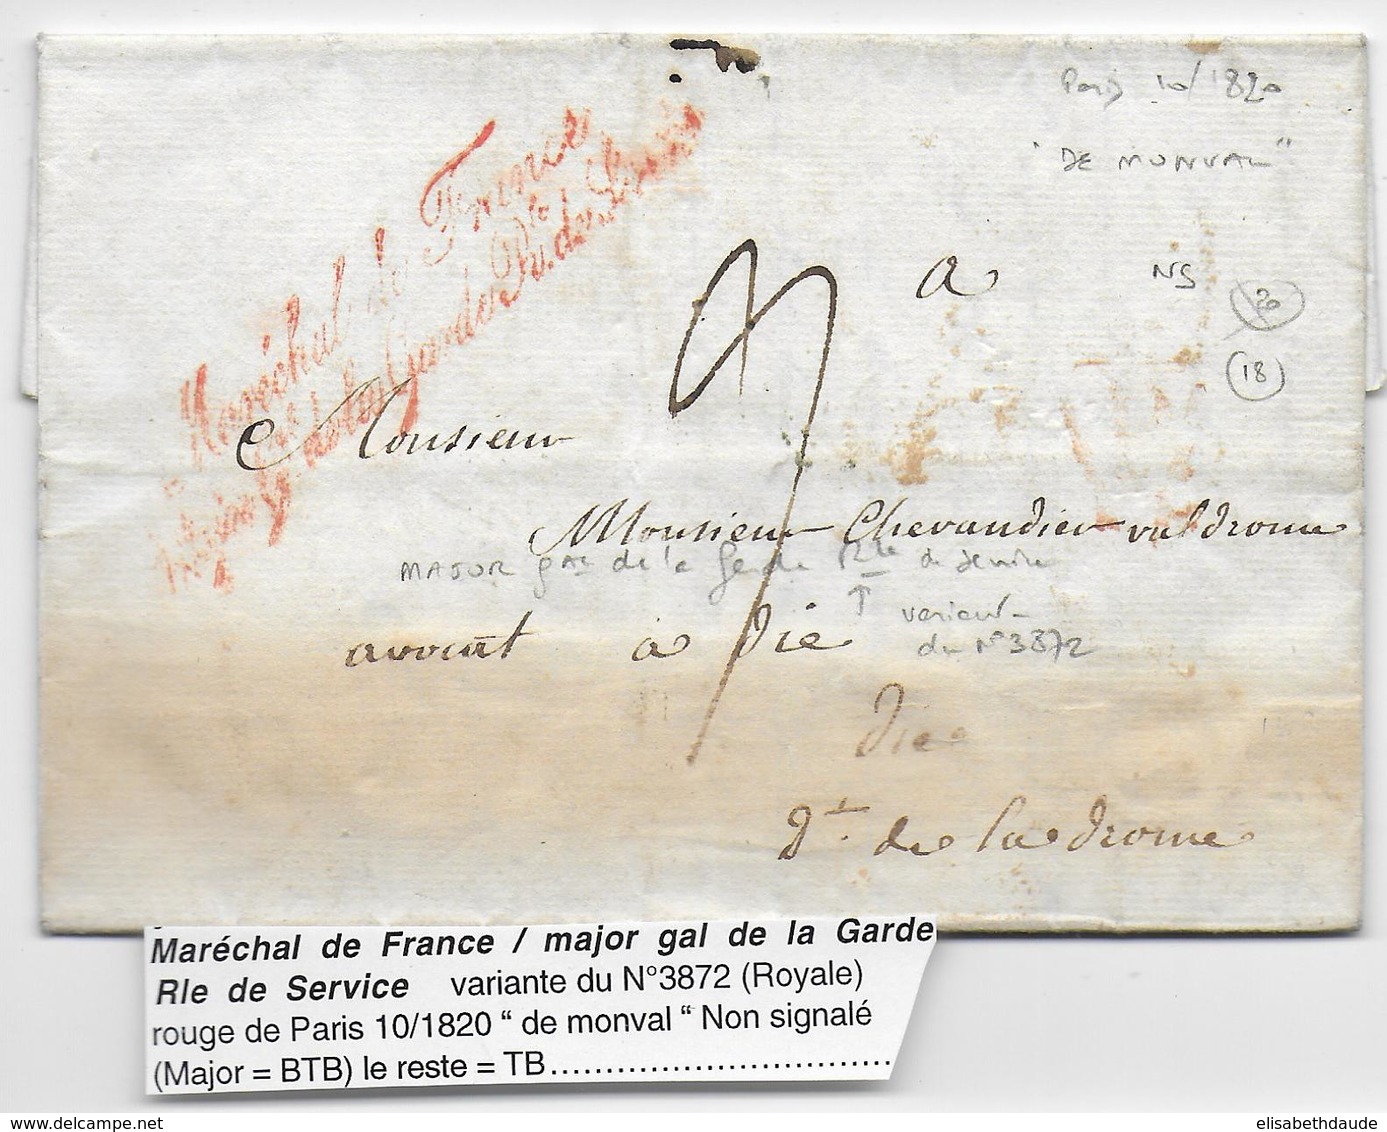 Paris 10/1820
"DE MONVAL"
Maréchal de France
Major gal de la Garde Rle de Service
a
NS
20
18
Monsieur
Monsieur Chevandier valdrome
MAJOR gal de la Garde Rle de Service
avocat à Die
variante
du N°3872
Die
Dt. de la Drome
Maréchal de France / major gal de la Garde
Rle de Service variante du N°3872 (Royale)
rouge de Paris 10/1820 “ de monval “ Non signalé
(Major = BTB) le reste = TB................................
www.delcampe.net
elisabethdaude